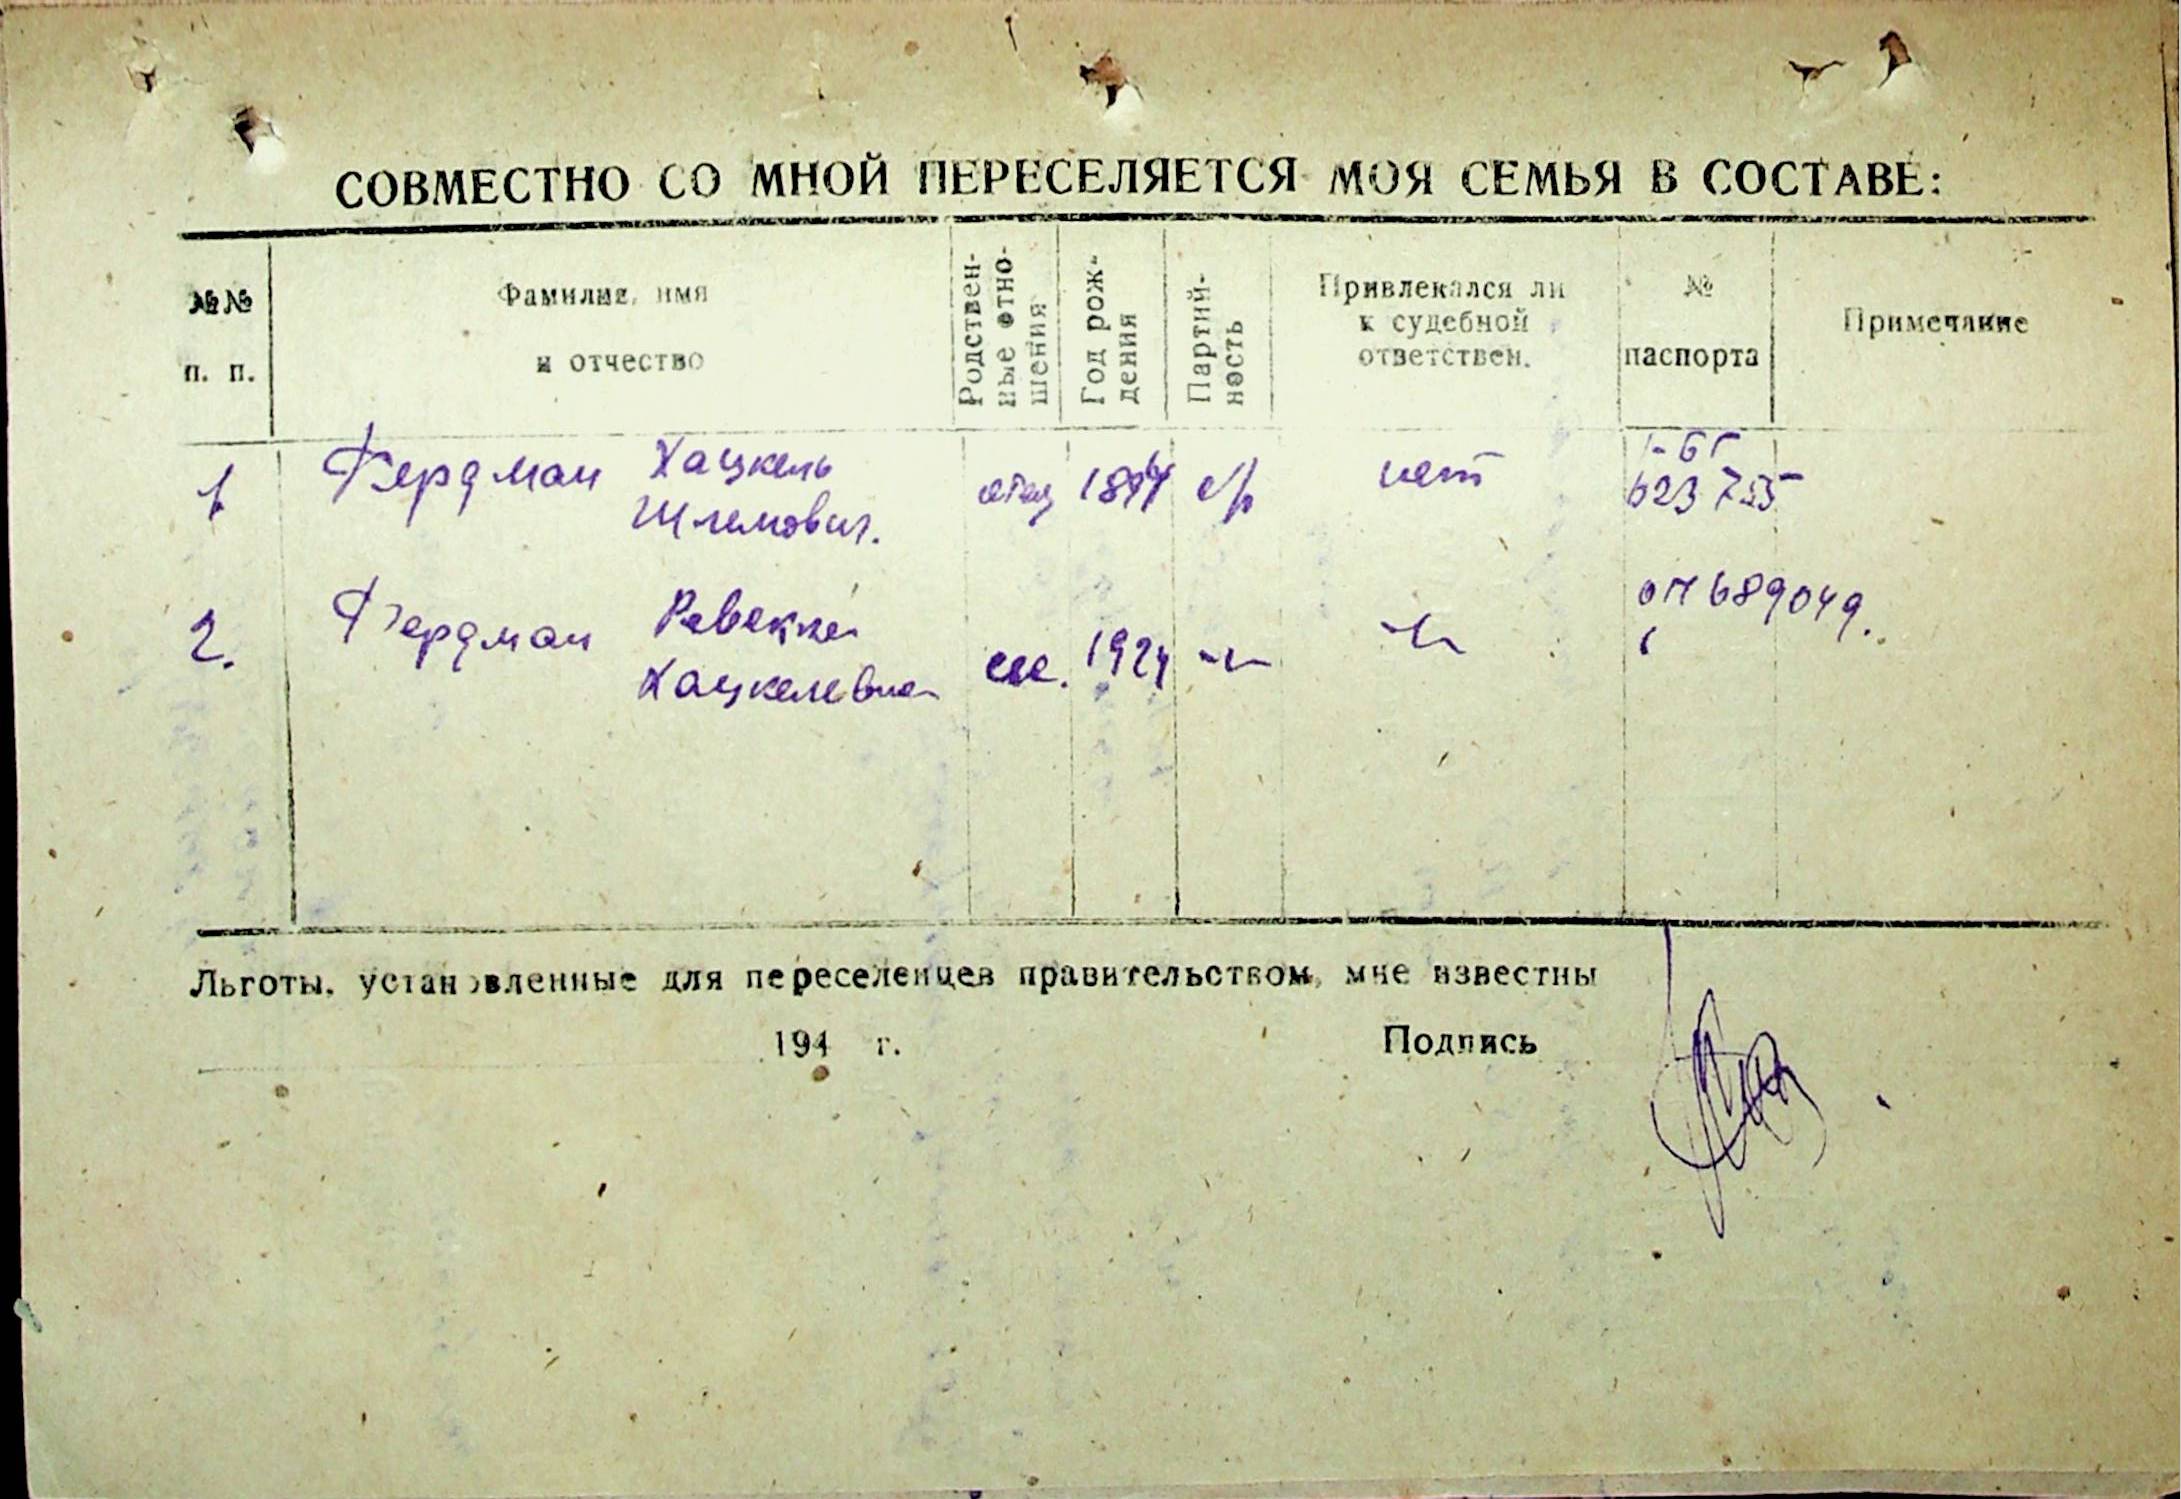 СОВМЕСТНО СО МНОЙ ПЕРЕСЕЛЯЕТСЯ МОЯ СЕМЬЯ В СОСТАВЕ:
№№ п. п.
Фамилия, имя и отчество
Родствен-
ные отно-
шения
Год рож-
дения
Партий-
ность
Привлекался ли
к судебной
ответствен.
№
паспорта
Примечание
1
Фердман Хацкель
Шлемович.
отец
б/п
нет
I-БГ
623755
2.
Фердман Ревекка
Хацкелевна
1924
-"-
-"-
689049.
Льготы, установленные для переселенцев правительством, мне известны
194 г.
Подпись